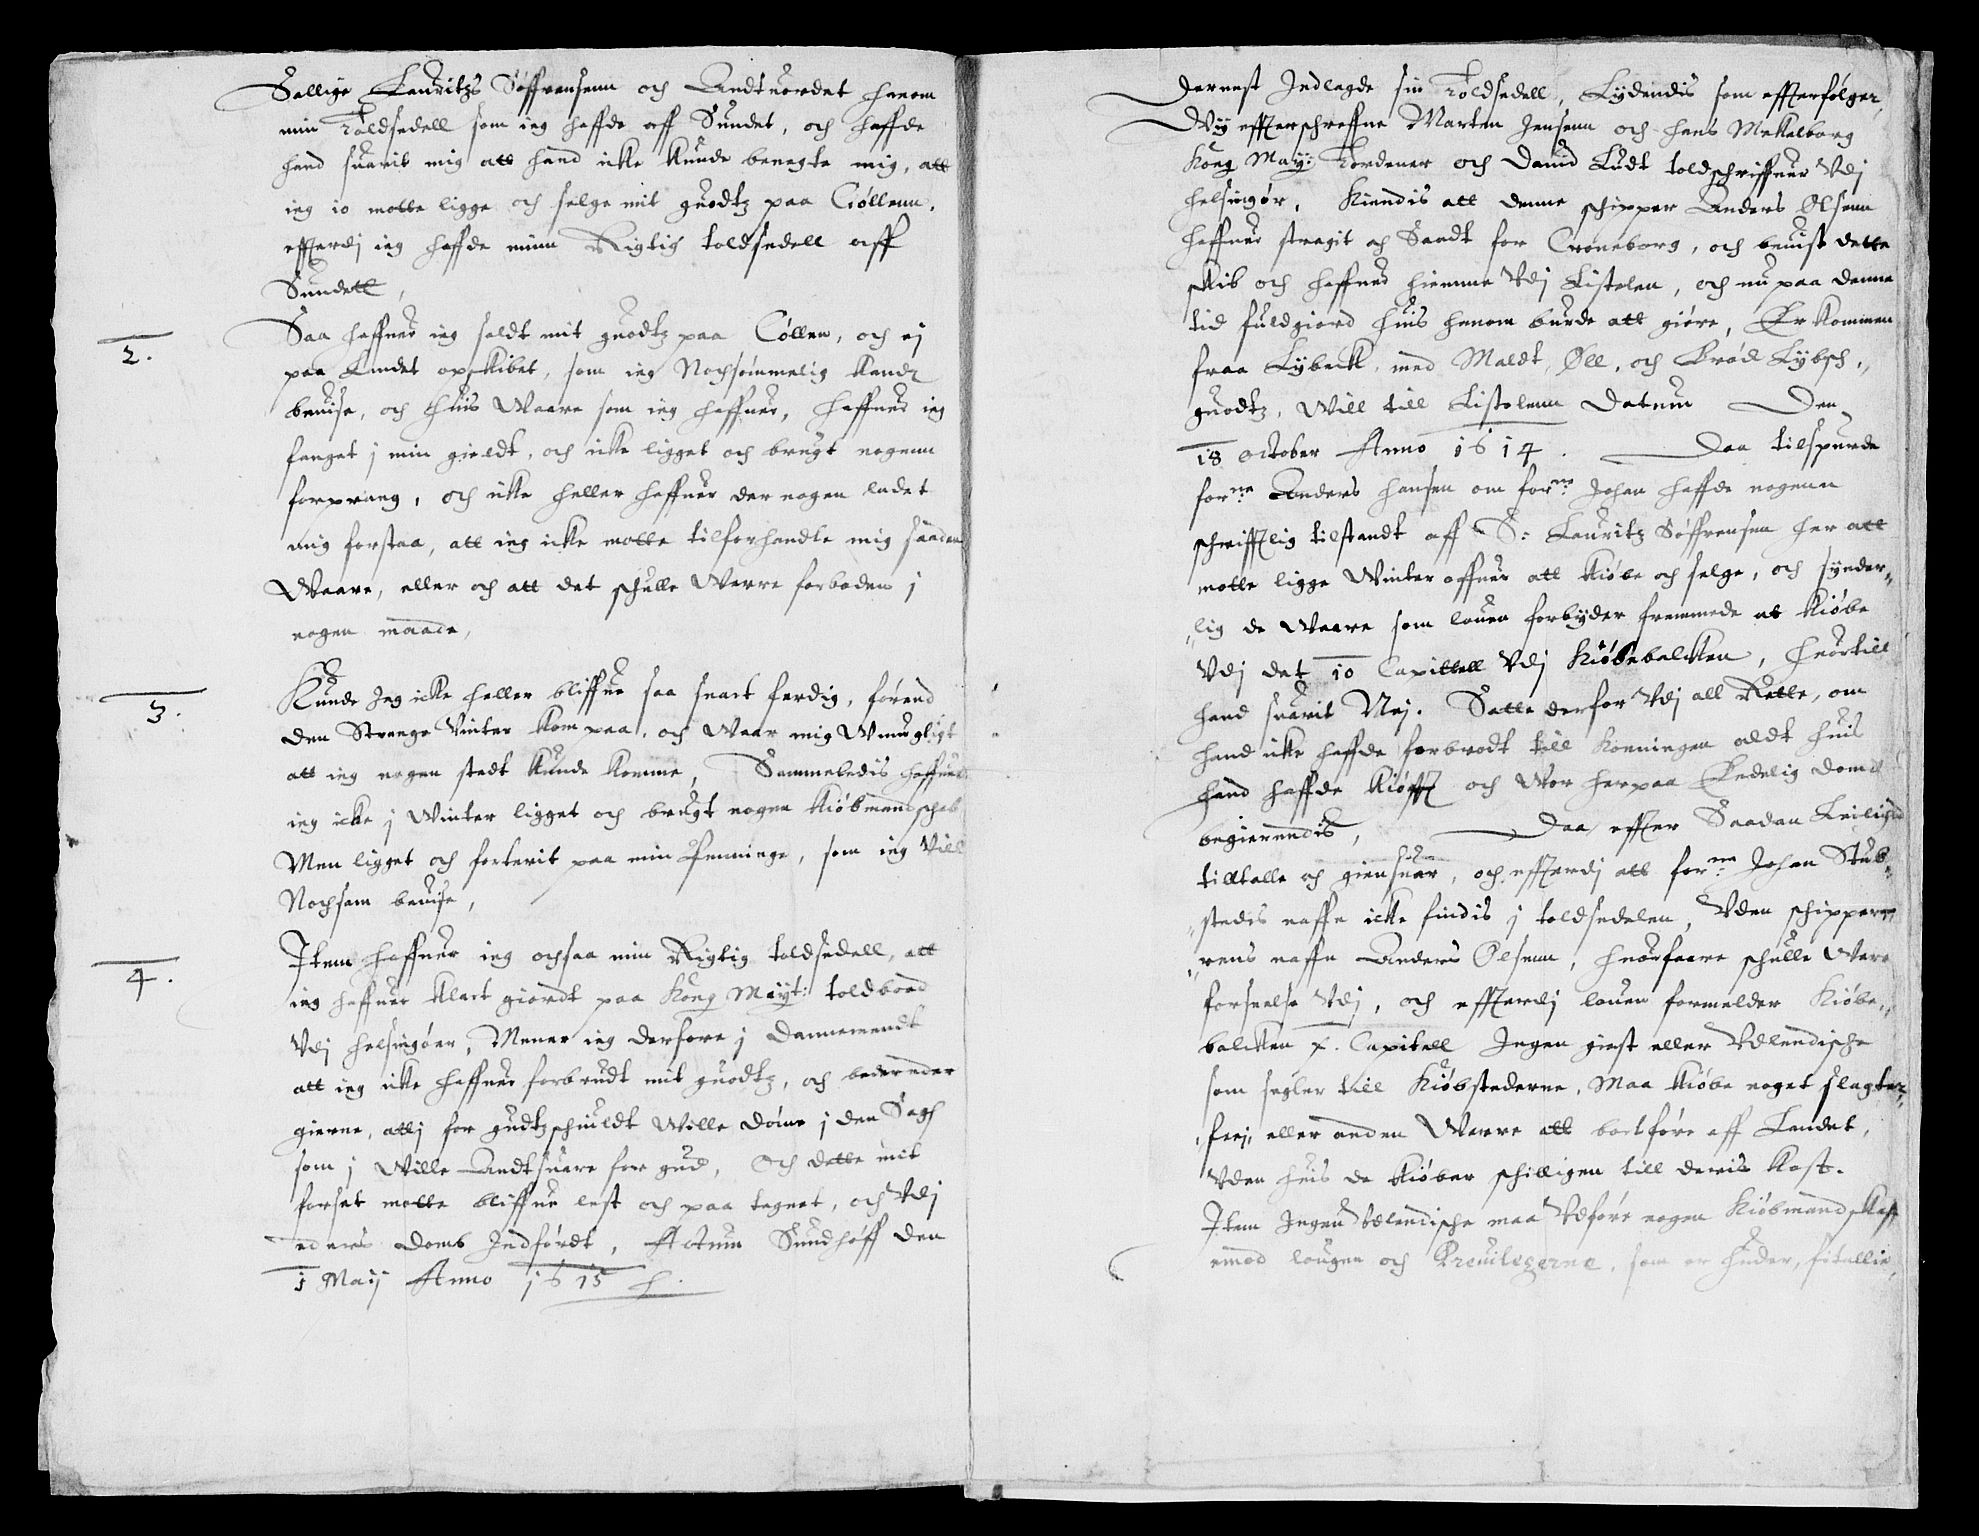 Sallige Lauritzs Söffrensenn och Andtuordet hanom
min Toldsedell som ieg haffde aff Sundet, och haffde
hand suarit mig att hand icke kunde benegte mig, att
ieg io motte ligge och selge mit guodtz paa Cöllenn,
effterdj ieg haffde minn Rigtig toldsedell aff
Sundett,
2.
Saa haffuer ieg soldt mit guodtz paa Cöllen, och ej
paa Landet opskibet, som ieg Nochsömmelig kand
beuise, och huis Waare som ieg haffuer, haffuer ieg
fanget j min gieldt, och icke ligget och brugt nogenn
forprang, och icke heller haffuer der nogen ladet
mig forstaa, att ieg icke motte tilforhandle mig saadan
Waare, eller och att det schulle Werre forboden j
nogen maade,
3.
Kunde Jeg icke heller bliffue saa snart ferdig, förend
den Strenge Vinter kom paa, och Waar mig Wmugligt
att ieg nogen stedt kunde komme, Sammeledis haffuer
ieg icke j Winter ligget och brugt nogen kiöbmandschab
Men ligget och forterit paa min Penninge, som ieg Vill
Nochsam beuise,
4.
Item haffuer ieg ochsaa min Rigtig toldsedell, att
ieg haffuer klart giordt paa Kong Mayt: toldboed
Vdj Helsingöer, Mener ieg derfore j Dannemendt
att ieg icke haffuer forbrudt mit guodtz, och beder eder
gierne, attj for gudtz schuldt Wille döme j den Sag
som j Wille Andtsuare for gud, Och dette mit
forset motte bliffue lest och paa tegnet, och Vdj
eders Domb Indfördt, Actum Sundhöff den
1 Maij Anno 1615
Dernest Indlagde sin Toldsedell, Lydendis som effterfölger
Wij effterschreffne Marten Jensenn och Hans Mekelborg
Kong May: Tordener och Dauid Ludt toldschriffuer Vdj
Helsingör, Kiendis att denne schipper Anders Olsenn
haffuer stragit och Sandt for Croneborg, och beuist dette
skib och haffuer hiemme Vdj Listolen, och nu paa denne
tid fuldgiord huis hanom burde att giöre, Er kommen
fraa Lybeck, med Maldt, Öll, och Bröd Lybsch
guodtz, Will till Listolenn Datum Den
18 October Anno 1614. Daa tilspurde
forne Anders Hansen om forne Johan haffde nogenn
schrifftlig tilstandt aff S: Lauritz Söffrensen her att
motte ligge Winter offuer att kiöbe och selge, och synder-
lig de Waare som louen forbyder fremmede at kiöbe
Vdj det 10 Capittell Vdj Kiöbebalcken, huortill
hand suarit Nej. Sette derfor Vdj all Rette, om
hand icke haffde forbrodt till Konningen aldt huis
hand haffde kiöfft och Wor herpaa Endelig Domb
begierendis, Daa effter Saadan Leilighed
tilltalle och giensuar, och effterdj att forne Johan Stub-
stedis naffn icke findis j toldsedelen, Vden schippe-
rens naffn Anders Olsenn, huorfaare schulle Were
forseelse Vdj, och effterdj louen formelder Kiöbe-
balcken x. Capitell Ingen giest eller Vdlendische
som segler till Kiöbstederne, Maa kiöbe noget slagter-
frej, eller anden Waare att bortföre aff Landet,
Vden huis de kiöber schilligen till deris kost.
Item Ingen Vdlendische maa Vdföre nogen Kiöbmandskaff
emod lougen och Preuilegerne, som er huder, fitallie,